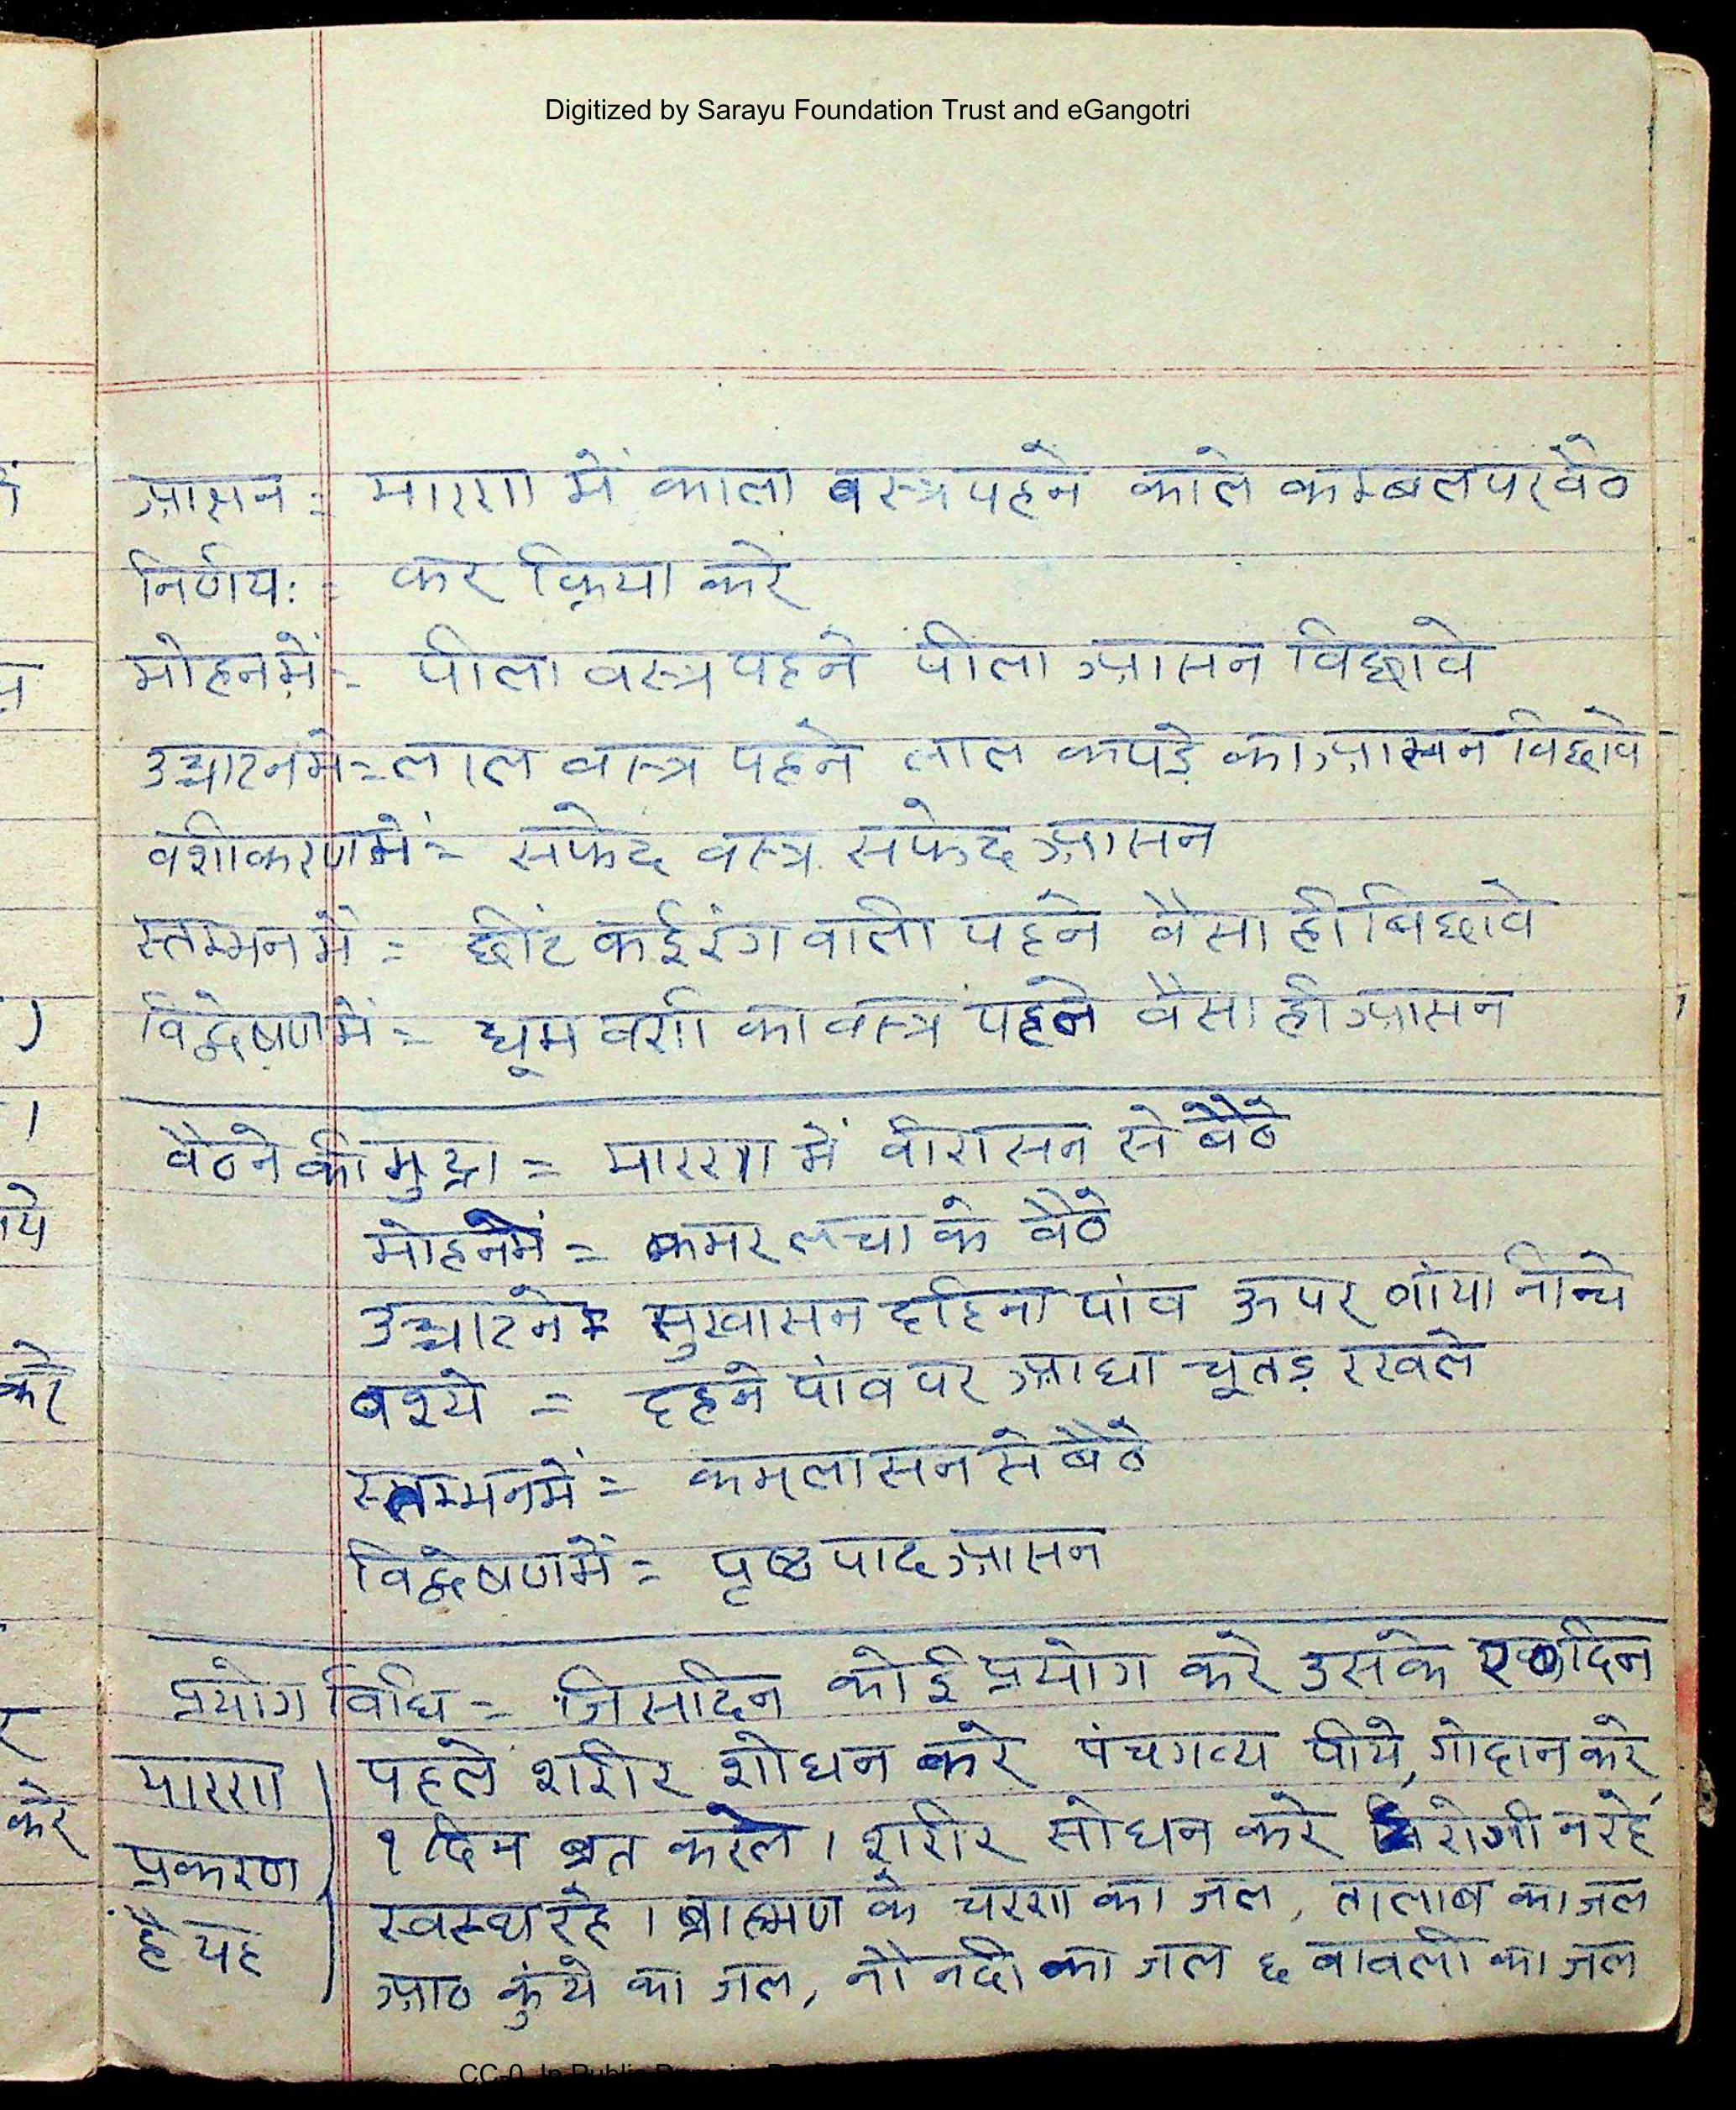 Digitized by Sarayu Foundation Trust and eGangotri
आसन := मारण में काला वस्त्र पहने काले कम्बल पर बैठ
निर्णय: = कर क्रिया करे
मोहन में = पीला वस्त्र पहने पीला आसन विछावे
उच्चाटन में = लाल वस्त्र पहने लाल कपड़े का आसन विछावे
वशीकरण में = सफेद वस्त्र सफेद आसन
स्तम्भन में = छींट कई रंग वाली पहने वैसा ही बिछावे
विद्वेषण में = धूम वर्ण का वस्त्र पहने वैसा ही आसन
वैठने की मुद्रा = मारण में वीरासन से बैठे
मोहन में = कमर लचा के वैठे
उच्चाटने = सुखासन दाहिना पांव ऊपर बांया नीचे
वश्ये = दहने पांव पर आधा चूतड़ रखले
स्तम्भन में = कमलासन से बैठे
विद्वेषण में = पृष्ठ पाद आसन
प्रयोग विधि = जिस दिन कोई प्रयोग करे उसके दिन
पहले शरीर शोधन करे पंचगव्य पीये, गोदान करे,
१ दिन व्रत करले । शरीर सोधन करे रोगी न रहे
स्वस्थ रहे । ब्राह्मण के चरण का जल, तालाब का जल
आठ कुंये का जल, नौ नदी का जल ६ बावली का जल
मारण
प्रकरण
है यह
CC-0. In Public